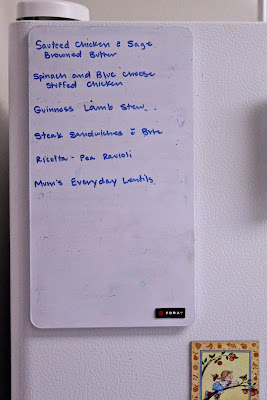 Sauteed Chicken & Sage
Browned Butter
Spinach and Blue Cheese
Stuffed Chicken
Guinness Lamb Stew
Steak Sandwiches
Ricotta - Pea Ravioli
Mum's Everyday Lentils
FORAY